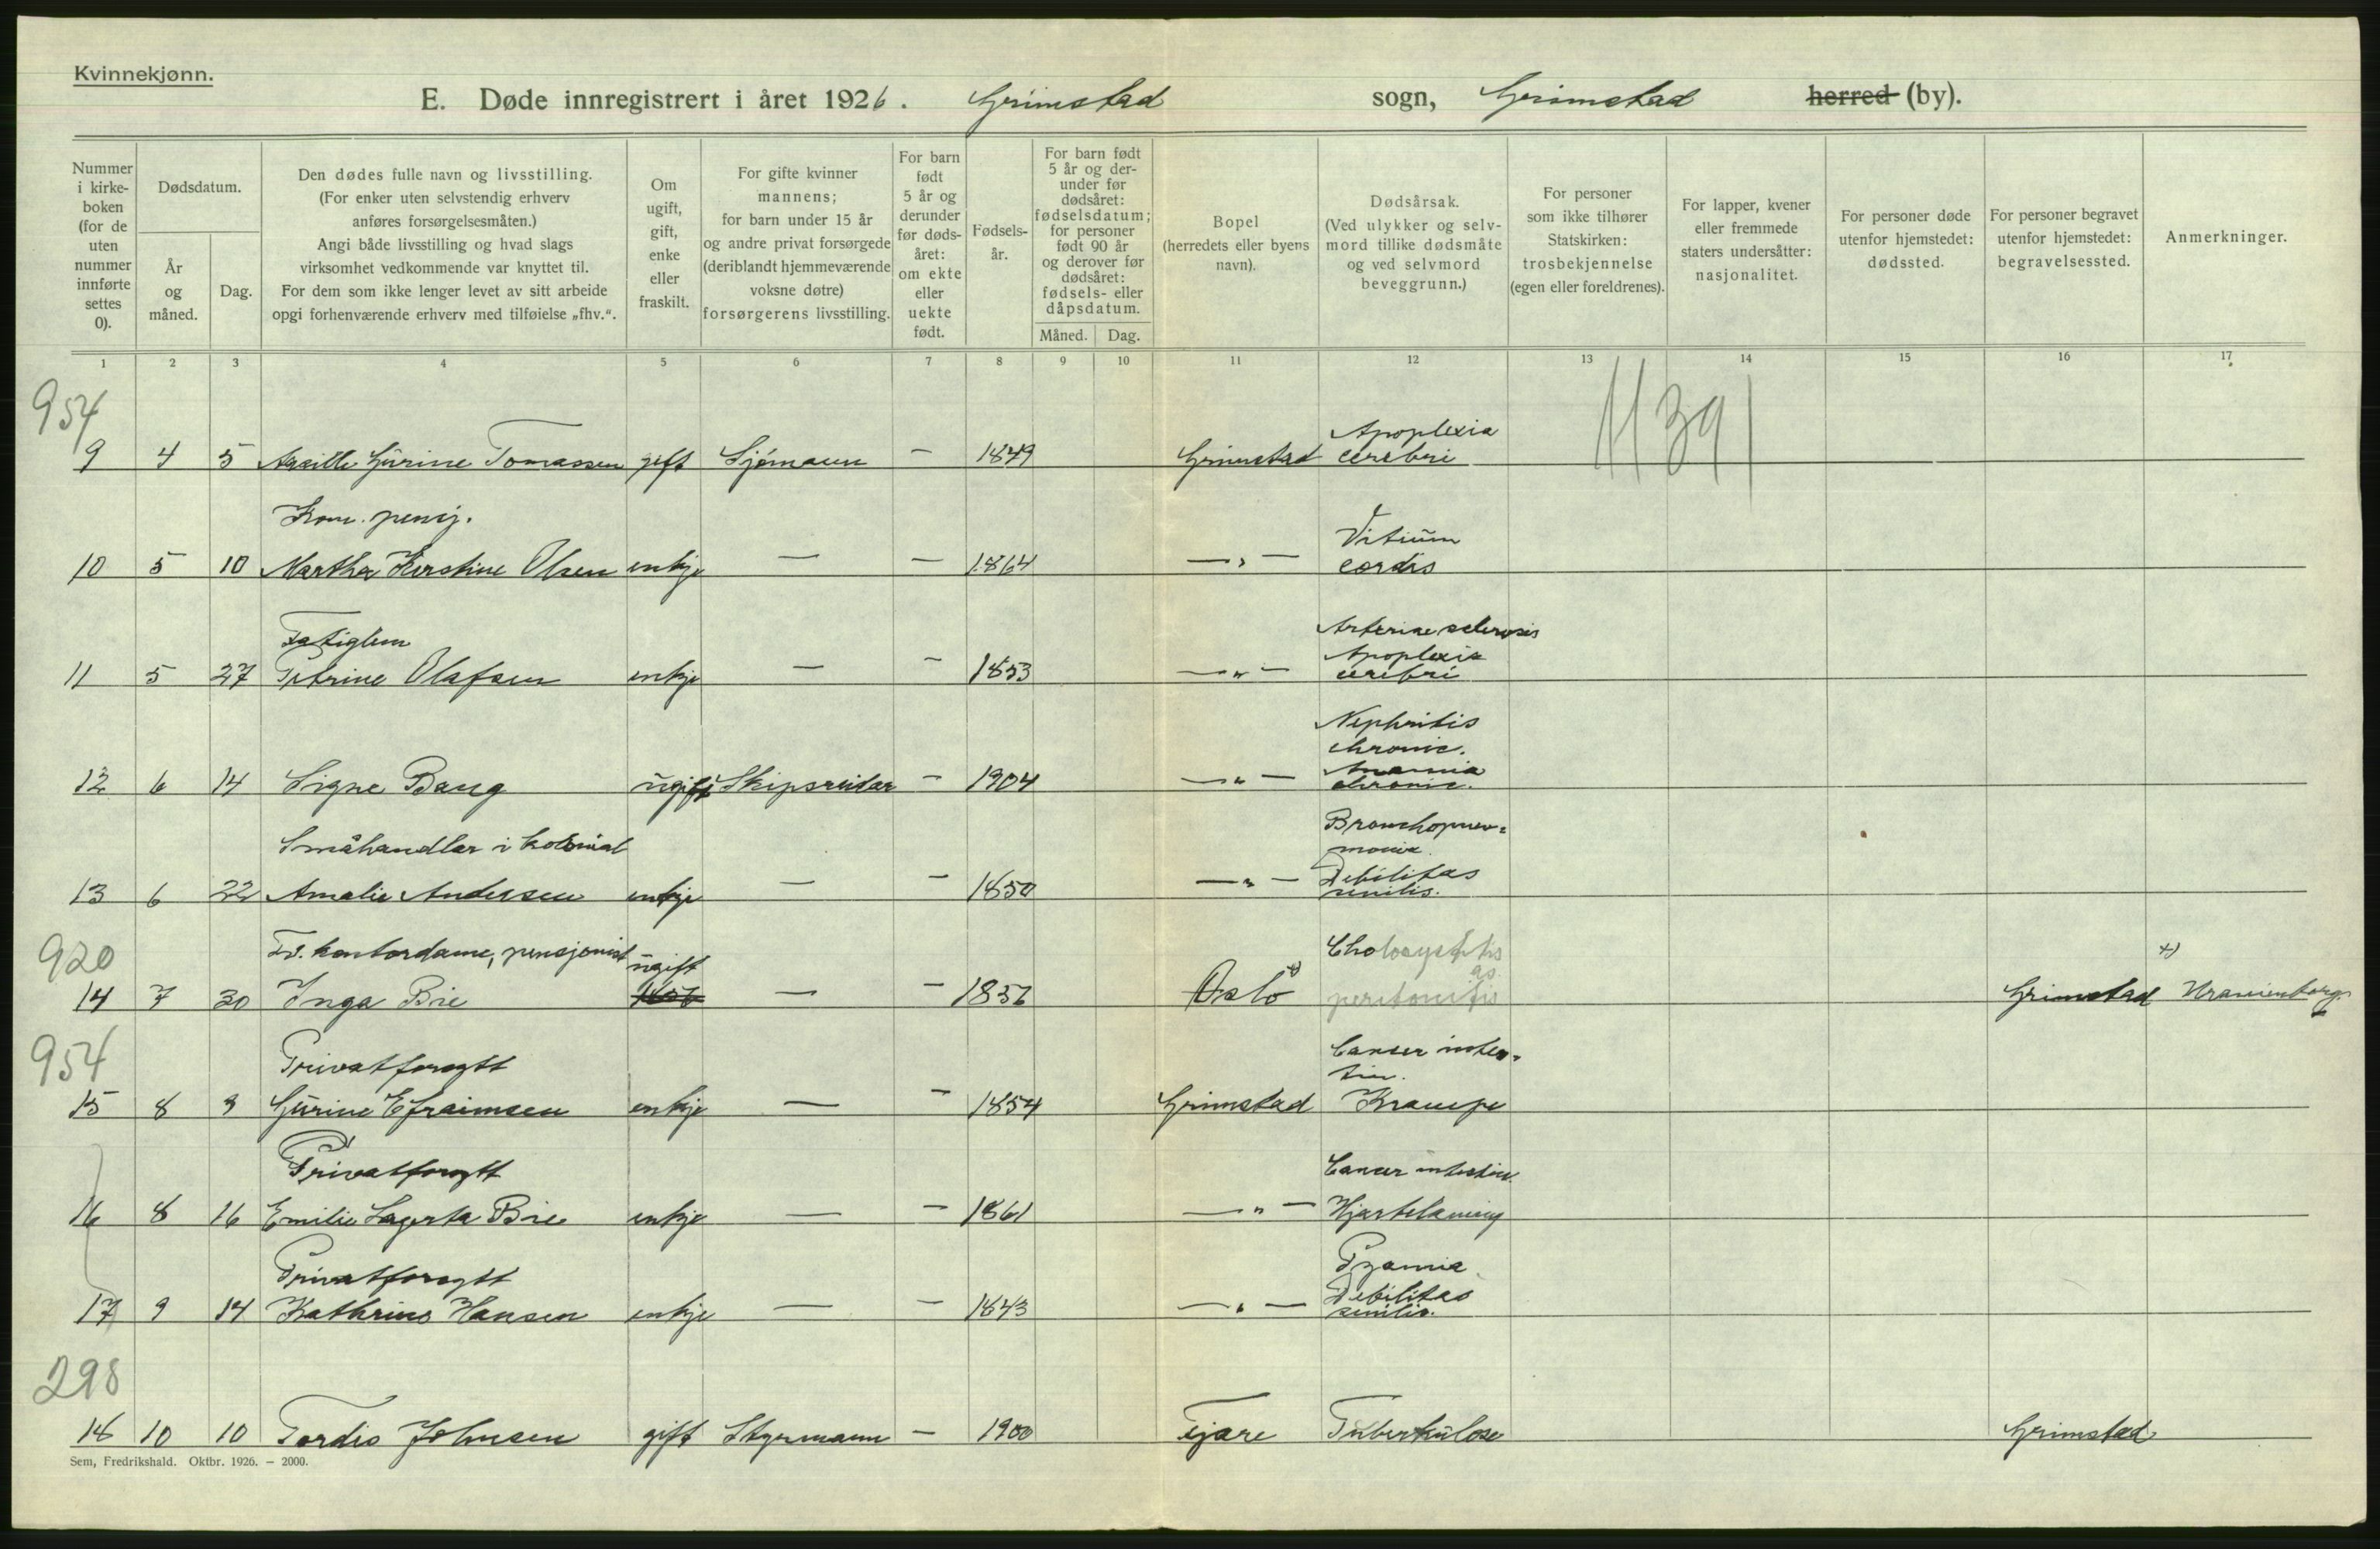 Kvinnekjønn.
E. Døde innregistrert i året 1926. Grimstad sogn, Grimstad herred (by).
Nummer i kirkeboken (for de uten nummer innførte settes 0).
Dødsdatum.
År og måned.
Dag.
Den dødes fulle navn og livsstilling.
(For enker uten selvstendig erhverv
anføres forsørgelsesmåten.)
Angi både livsstilling og hvad slags
virksomhet vedkommende var knyttet til.
For dem som ikke lenger levet av sitt arbeide
opgi forhenværende erhverv med tilføielse „fhv.“.
Om ugift, gift, enke eller fraskilt.
For gifte kvinner
mannens;
for barn under 15 år
og andre privat forsørgede
(deriblandt hjemmeværende
voksne døtre)
forsørgerens livsstilling.
For barn født 5 år og derunder før dødsåret: om ekte eller uekte født.
Fødselsår.
For barn født 5 år og derunder før dødsåret: fødselsdatum; for personer født 90 år og derover før dødsåret: fødsels- eller dåpsdatum.
Måned. Dag.
Bopel
(herredets eller byens
navn).
Dødsårsak.
(Ved ulykker og selvmord tillike dødsmåte
og ved selvmord
beveggrunn.)
For personer
som ikke tilhører
Statskirken:
trosbekjennelse
(egen eller foreldrenes).
For lapper, kvener
eller fremmede
staters undersåtter:
nasjonalitet.
For personer døde
utenfor hjemstedet:
dødssted.
For personer begravet
utenfor hjemstedet:
begravelsessted.
Anmerkninger.
1 2 3 4 5 6 7 8 9 10 11 12 13 14 15 16 17
954
Apoplexia
9 4 5 Gurine Tomassen gift Sjømann — 1849 Grimstad cerebri
Kom. pensj.
Vitium
10 5 10 Martha Kirstine Olsen enkje — — 1864 —„— cordis
Fatiglem
Arteriae sclerosis
Apoplexia
11 5 27 Petrine Olafsen enkje — — 1853 —„— cerebri
Nephritis
chronic.
Anæmia
12 6 14 Signe Bang ugift Skipsreidar — 1904 —„— chronic.
Småhandlar i kolonial
Bronchopneu=
monia.
Debilitas
13 6 22 Amalie Andersen enkje — — 1850 —„— senilis.
920
Fv. kontordame, pensjonist ugift
Cholocystitis
14 7 30 Inga Bie 1856 — — 1856 Oslo x) peritonitis Grimstad x) Uranienborg
954
Privatforsytt
Cancer intes=
tin.
15 8 9 Gurine Efraimsen enkje — — 1854 Grimstad Krampe
Privatforsytt
Cancer intestin.
16 8 16 Emilie Lagerta Bie enkje — — 1861 —„— Hjartelaming
Privatforsytt
Pyæmia
Debilitas
17 9 14 Kathrine Hansen enkje — — 1843 —„— senilis.
298
18 10 10 Tordis Johnsen gift Styrmann — 1900 Fjære Tuberkulose Grimstad
Sem, Fredrikshald. Oktbr. 1926. — 2000.